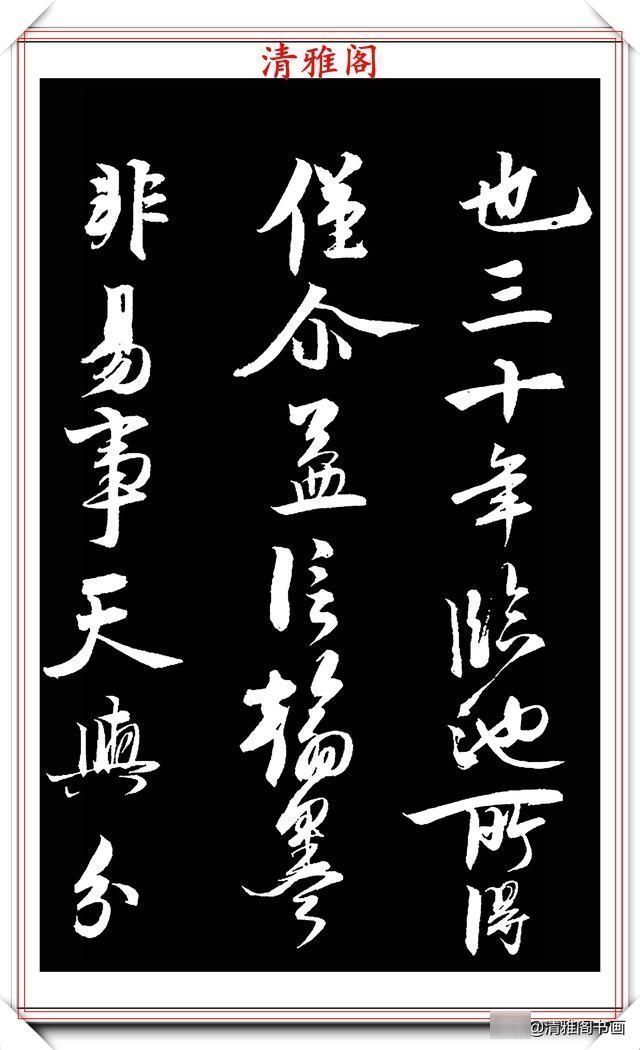 清雅阁
也三十年临池所得
僅尒益信翰墨
非易事天與分
@清雅阁书画